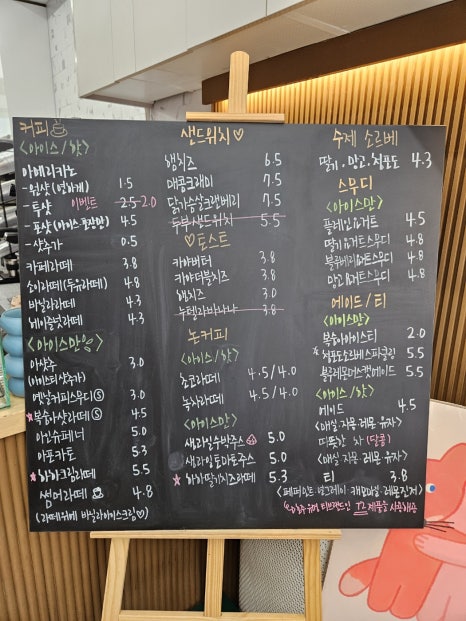 커피
<아이스/핫>
아메리카노
- 원샷 (연하게) 1.5
- 투샷 이벤트 2.5→2.0
- 포샷 (아이스·포장만) 4.5
- 샷추가 0.5
카페라떼 3.8
소이라떼 (두유라떼) 4.8
바닐라라떼 4.3
헤이즐넛라떼 4.3
<아이스만>
아샷추 3.0
(아이스티 샷추가)
옛날커피스무디 Ⓢ 3.0
복숭아샷라떼 Ⓢ 4.5
아인슈페너 5.0
아포카토 5.3
하하크림라떼 5.5
썸머라떼 4.8
(라떼위에 바닐라아이스크림♡)
샌드위치♡
햄치즈 6.5
매콤크래미 7.5
닭가슴살크랜베리 7.5
두부샌드위치 5.5
♡토스트
카야버터 3.8
카야더블치즈 3.8
햄치즈 3.0
누텔라바나나 3.8
논커피
<아이스/핫>
초코라떼 4.5/4.0
녹차라떼 4.5/4.0
<아이스만>
생과일수박주스 5.0
생과일토마토주스 5.0
하하딸기치즈라떼 5.3
수제 소르베
딸기·망고·청포도 4.3
스무디
<아이스만>
플레인요거트 4.5
딸기요거트스무디 4.8
블루베리요거트스무디 4.8
망고요거트스무디 4.8
에이드/티
<아이스만>
복숭아아이스티 2.0
청포도소르베스파클링 5.5
블루레몬머스캣에이드 5.5
<아이스/핫>
에이드 4.5
<매실·자몽·레몬·유자>
따뜻한 차 (달콤)
<매실·자몽·레몬·유자>
티 3.8
<페퍼민트·얼그레이·캐모마일·레몬진저>
티브랜드인 TZ 제품을 사용해요